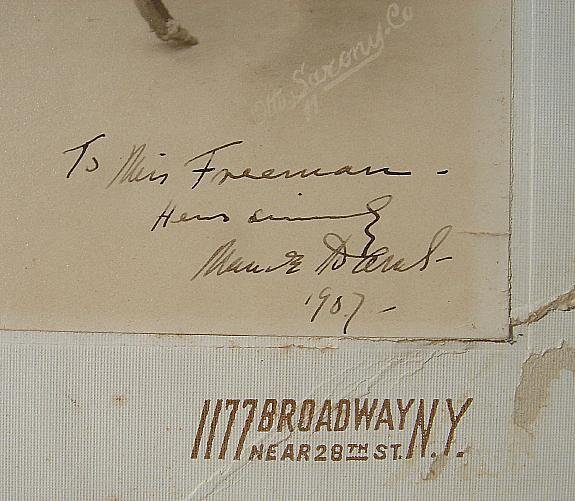 Otto Sarony Co
To Miss Freeman -
Hers sincerely
1907 -
1177 BROADWAY N.Y.
NEAR 28TH ST.